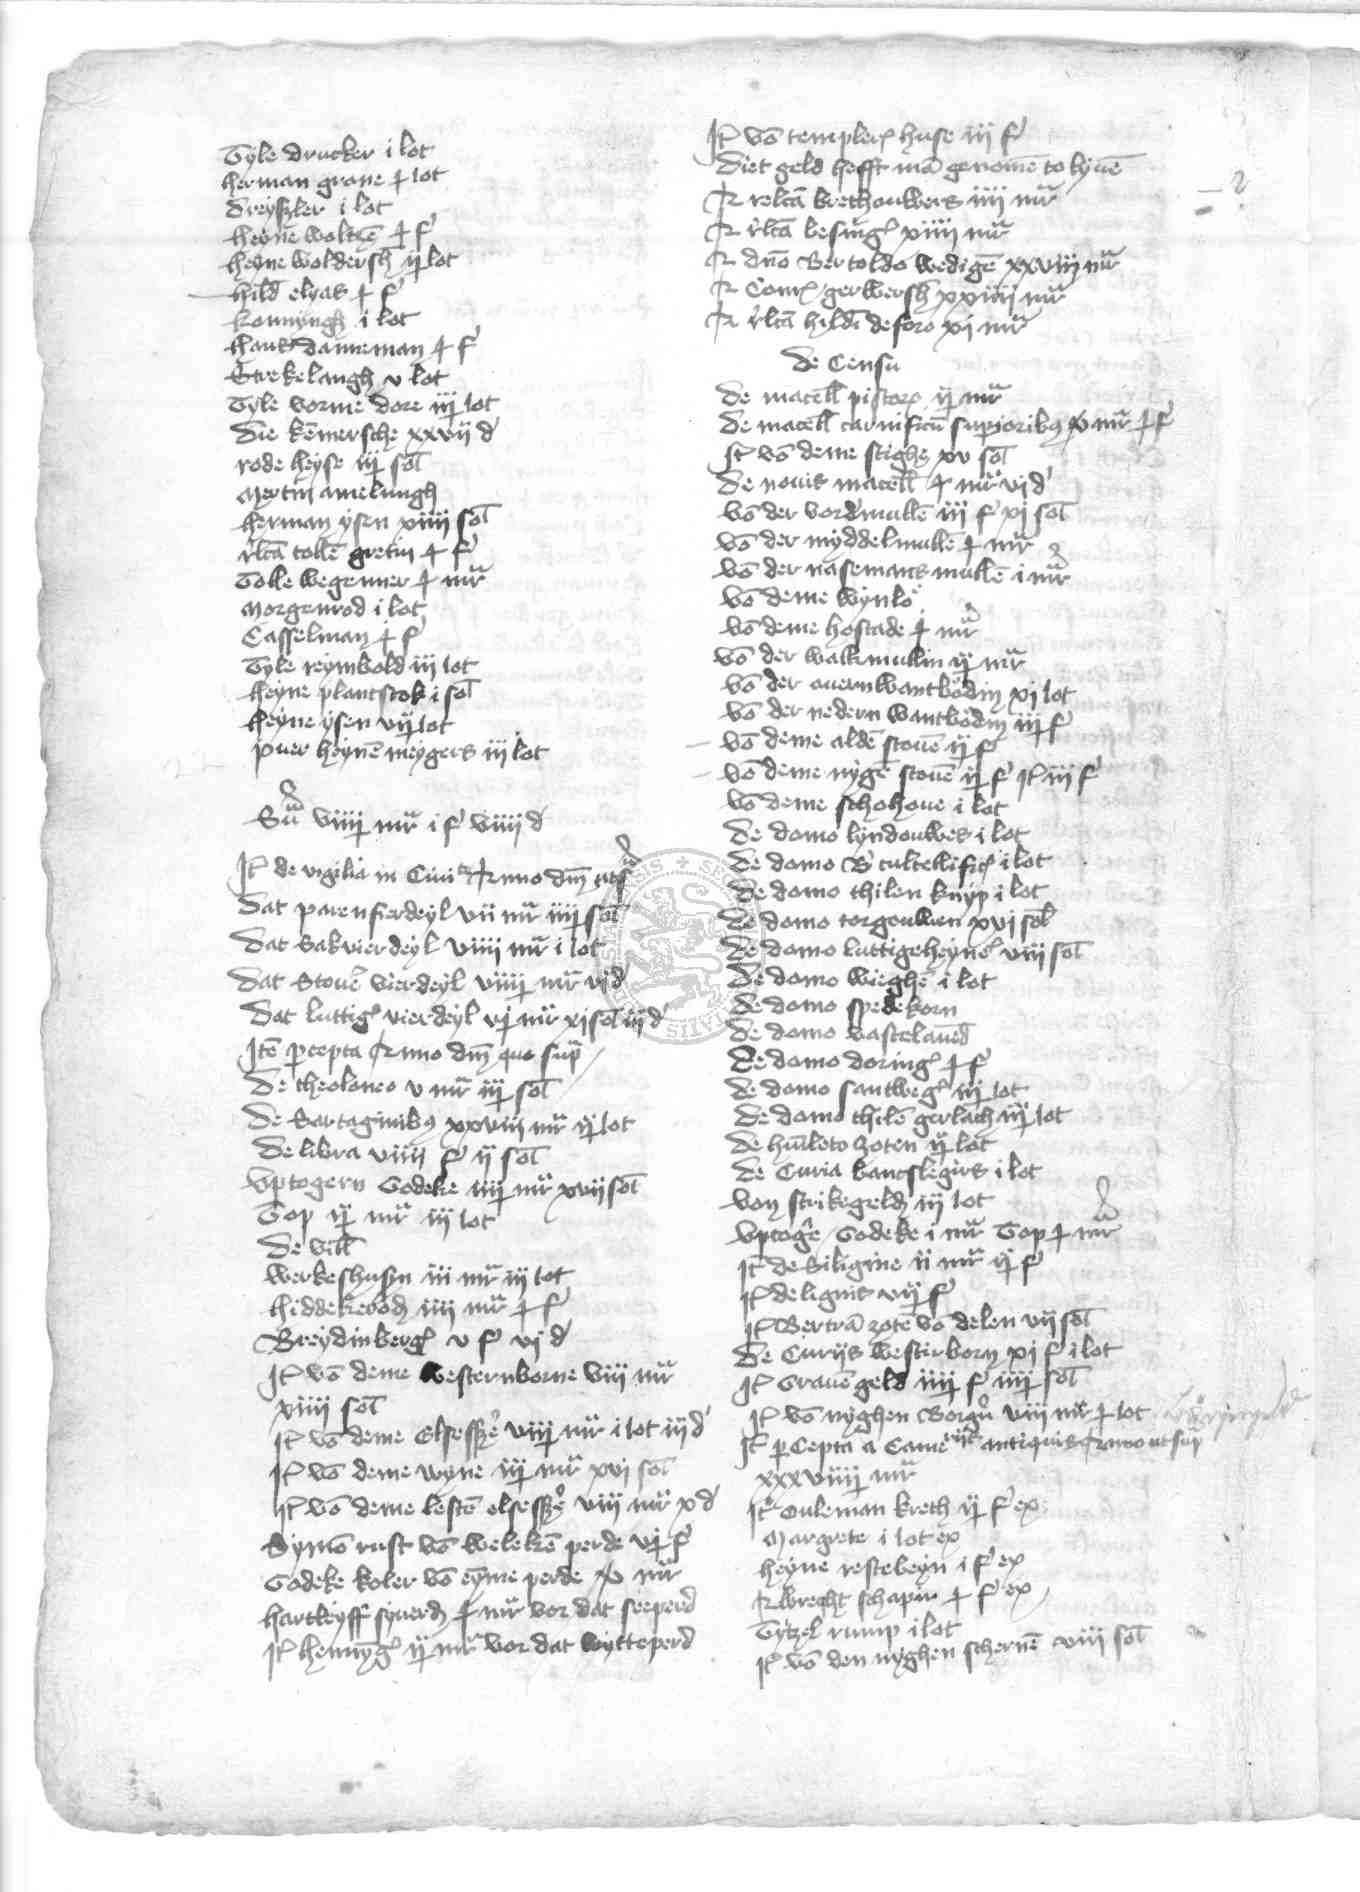 Tyle drucker i lot
herman grone ꝉ lot
Dreyszler i lot
heyne woltē ꝉ f
heyne woldersh ij lot
hild elyas ꝉ f
konnyngh i lot
hans danneman ꝉ f
Strekelangh v lot
Tyle vorme dore iij lot
die kēmersche xxvij d
rode heyse iij sol
Mertin amelungh
herman ysen xiiii sol
rlcā tollē gretin ꝉ f
Tolle wegener ꝉ mr
Morgenrod i lot
Casselman ꝉ f
Tyle reymbold iii lot
heyne plantstok i sol
heyne ysen vij lot
puer heynē meygers iij lot
Sū viiij mr i f viiij d
It de vigilia in Civit Anno dm
Dat parenfierdeyl vii mr iiij sol
Dat Sakvierdeyl viiii mr i lot
Dat Stouē vierdeyl viiij mr vj d
Dat luttig vierdeyl vj mr xi sol iij d
Itē pcepta Anno dm quo sup
De theoloneo v mr iij sol
De Sartaginibꝫ xxviii mr ij lot
De libra viiij f ij sol
Uptogern Godeke iiij mr xvij sol
Top ij mr iij lot
De vill
Werkeshusyn iii mr iij lot
hiddekerod iiij mr ꝉ f
Breydinberg v f vj d
It vō deme westernborne viij mr
xiiii sol
It vō deme Elsesszē viij mr i lot iij d
It vō deme wyne iij mr xvj sol
It vō deme lestē elsesszē viij mr x d
Symō rust vō welekē perde vj f
Godeke koler vō eyme perde mr
hartleyff syverd ꝉ mr vor dat seeperd
It henyg ij mr vor dat wytteperd
It vō templer huse iij f
Diet geld hefft mā genomē to lyuē
A relcā brethouwers iiij mr
A rlcā besing xiiij mr
A dno Bertoldo wedigē xxviij mr
A Com gerwersh xxiiij mr
A rlcā hild de foro xj mr
de Censu
De macell pistor ij mr
De macell carnificū supioribꝫ mr ꝉ f
It vō deme stighe xv sol
De nouis macell ꝉ mr vj d
Vō der vordmullē iij f xj sol
Vō der myddelmullē ꝉ mr
Vō der nasemansmullē i mr
Vō deme wynlo
Vō deme hostade ꝉ mr
Vō der walkmullin ij mr
Vō der ouern wantbodin xj lot
Vō der nedern wantbodin iij f
Vō deme aldē stouē ij f
Vō deme nygē stouē ij f It iij f
Vō deme schohoue i lot
De domo lyndouwes i lot
De domo B cultellific i lot
De domo thilen knyp i lot
De domo torgouwen xvj sol
De domo luttigeheyne viij sol
De domo wieghē i lot
De domo spedekorn
De domo vastelaued
De domo doring ꝉ f
De domo santweg iij lot
De domo thilē gerlach iij lot
De huleto zoten ij lot
De Curia bantslegirs i lot
Von strikegeld iij lot
Uptogē Godeke i mr Top ꝉ mr
It de Siligine ii mr ij f
It de lignis vij f
It Bertrā zotē vō delen vij sol
De Curijs westirborn xj f i lot
It Grauēgeld iiij f iiij sol
It vō nyghen Borg viij mr ꝉ lot
It pCepta a Camerijs antiquis Anno ut sup
xxxviiij mr
It Ouleman kreth ij f ex
Margrete i lot ex
heyne restebeyn i f ex
Albrecht schaper ꝉ f ex
Tytzel rump i lot
It vō den nyghen schernē viij sol